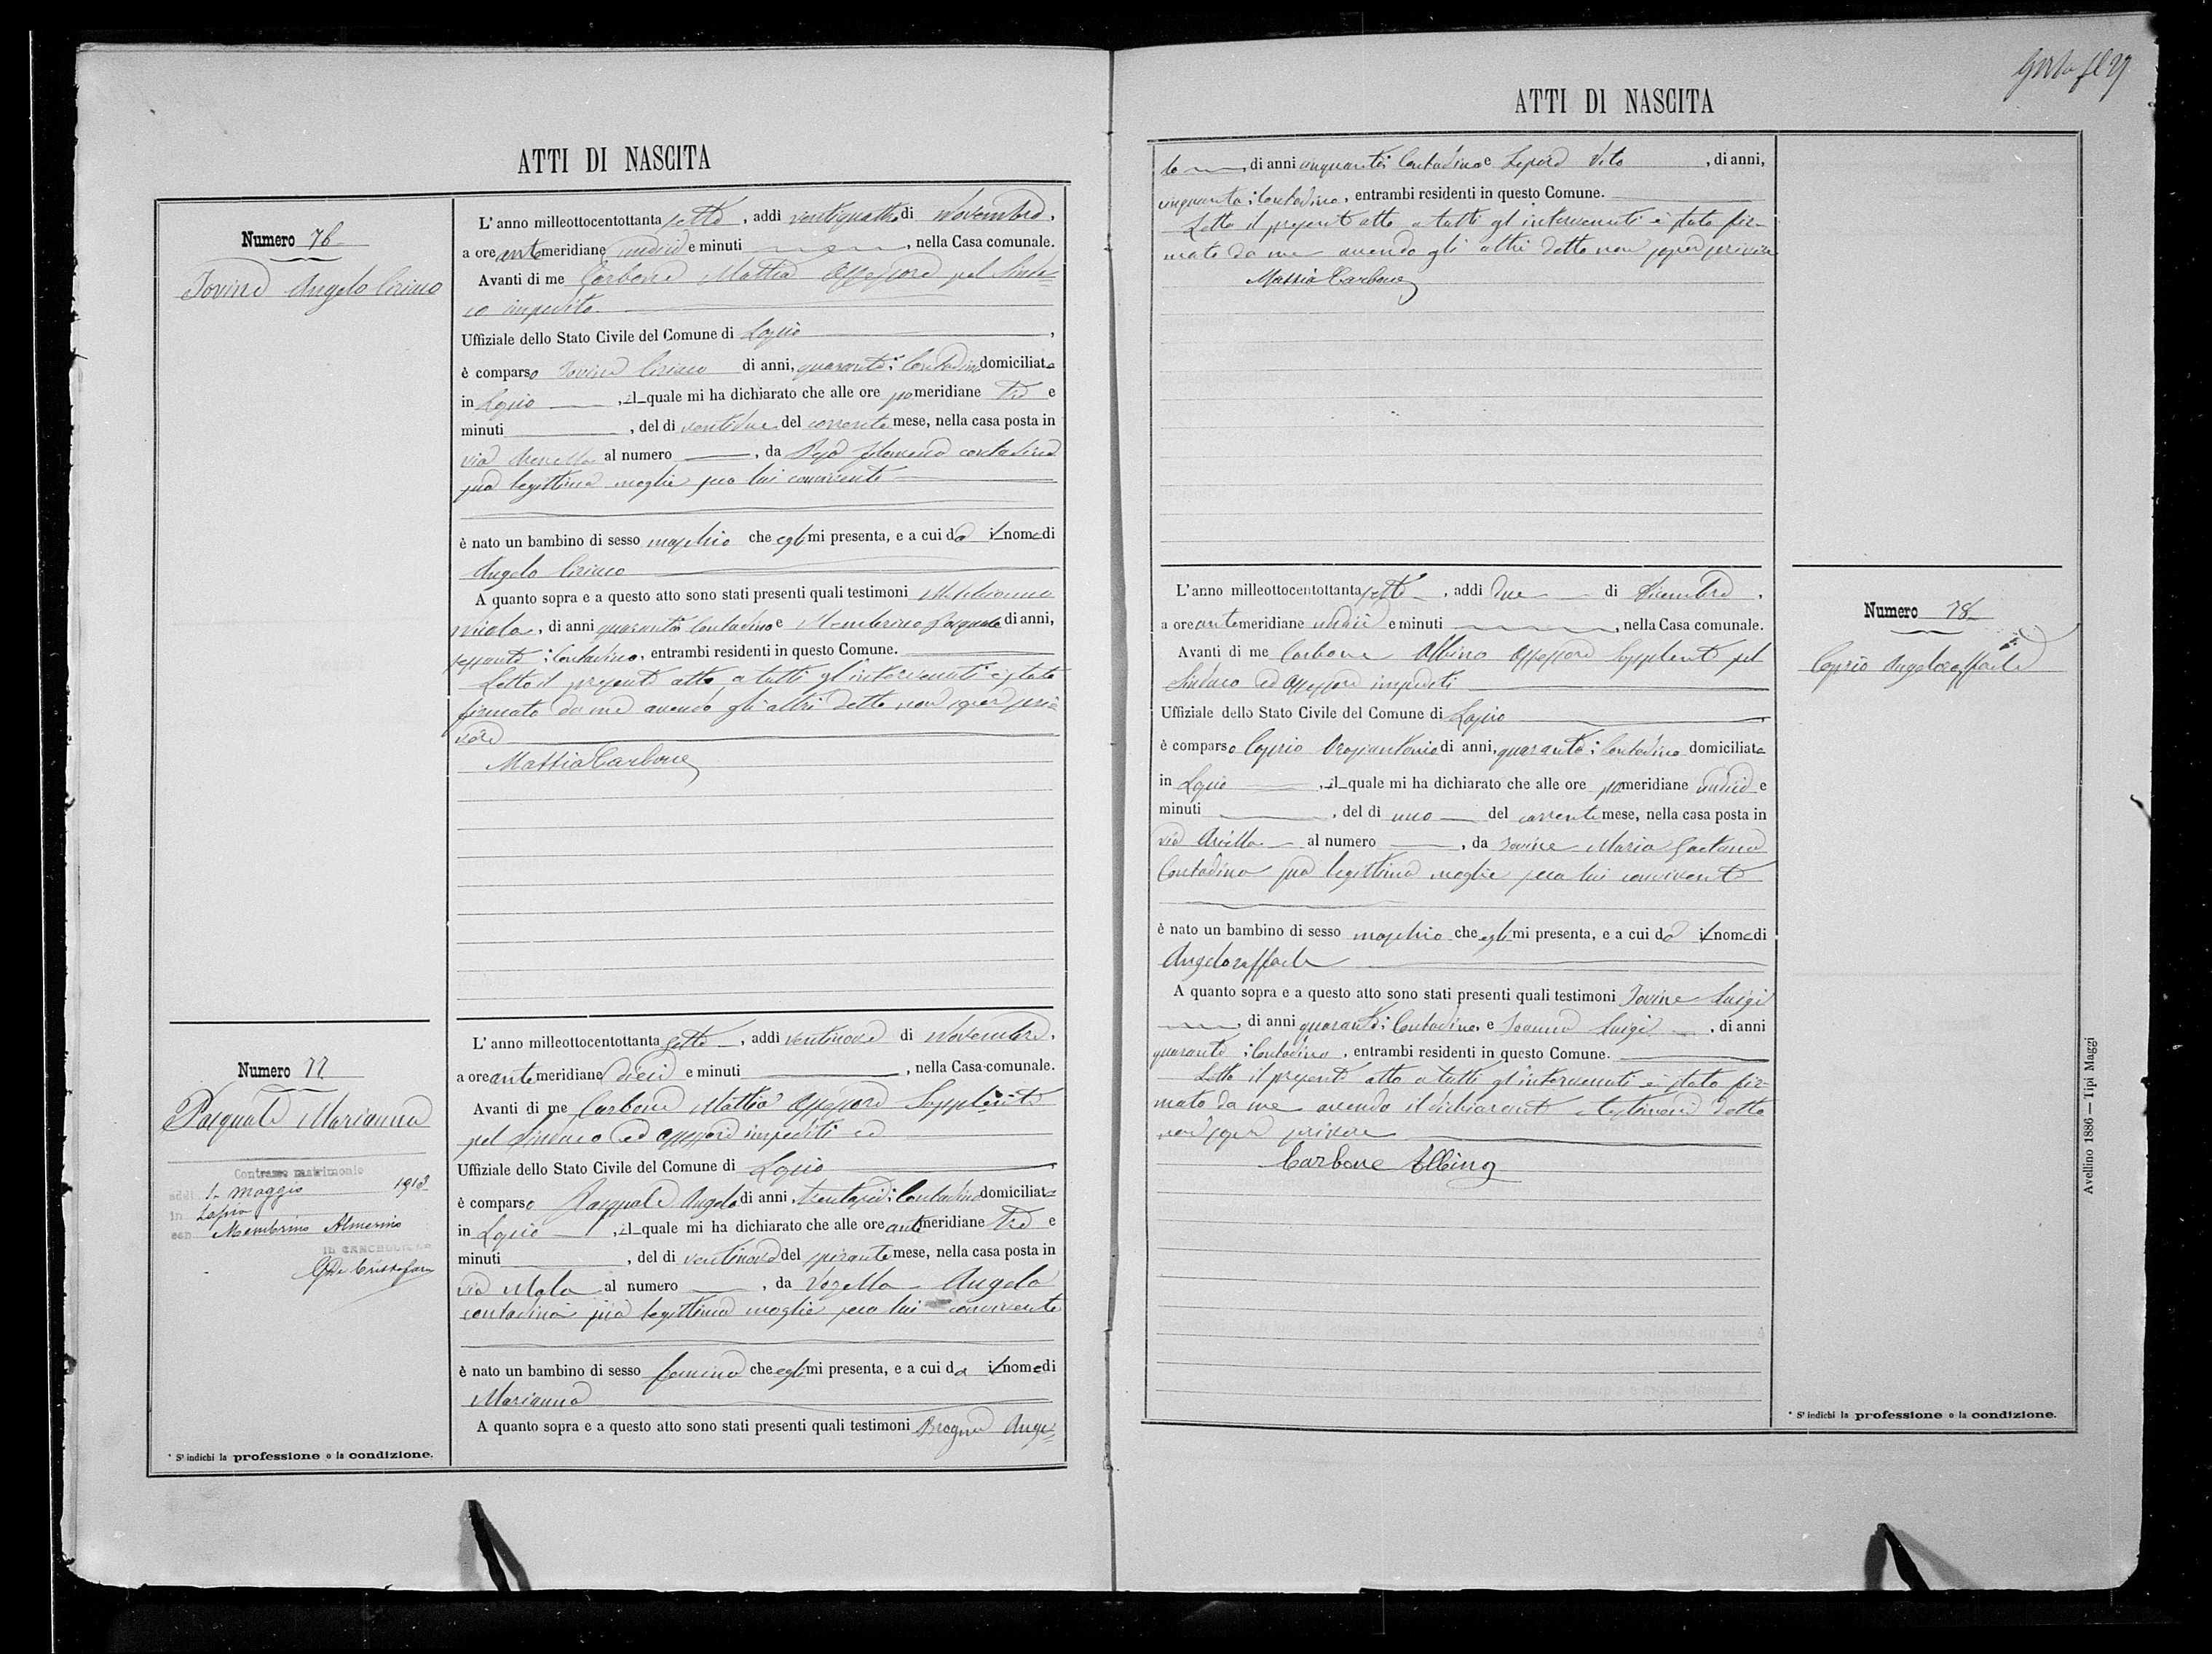 ATTI DI NASCITA
Numero 76
Iovine Angelo Ciriaco
L'anno milleottocentottanta sette, addì ventiquattro di Novembre,
a ore antemeridiane undici e minuti, nella Casa comunale.
Avanti di me Carbone Mattia Assessore pel Sinda=
co impedito.
Uffiziale dello Stato Civile del Comune di Lapio,
è comparso Iovine Ciriaco di anni, quaranta; Contadino domiciliato
in Lapio, il quale mi ha dichiarato che alle ore pomeridiane tre e
minuti, del dì ventidue del corrente mese, nella casa posta in
via al numero, da Filomena contadina
sua legittima moglie seco lui convivente
è nato un bambino di sesso maschio che egli mi presenta, e a cui dà il nome di
Angelo Ciriaco
A quanto sopra e a questo atto sono stati presenti quali testimoni
Nicola, di anni quaranta Contadino e Membrino Pasquale di anni,
sessanta; Contadino, entrambi residenti in questo Comune.
Letto il presente atto a tutti gl'intervenuti è stato
firmato da me avendo gli altri detto non saper scri=
vere
Mattia Carbone
Numero 77
Pasquale Marianna
Contrasse matrimonio
addì 1- Maggio 1913
in Lapio
con Membrino Almerino
IL CANCELLIERE
L'anno milleottocentottanta sette, addì ventinove di Novembre,
a ore antemeridiane dieci e minuti, nella Casa comunale.
Avanti di me Carbone Mattia Assessore Supplente
pel Sindaco ed assessore impediti ed
Uffiziale dello Stato Civile del Comune di Lapio
è comparso Pasquale Angelo di anni, trentasei; Contadino domiciliato
in Lapio, il quale mi ha dichiarato che alle ore antemeridiane tre e
minuti, del dì ventinove del spirante mese, nella casa posta in
via Mola al numero, da Vozella Angela
contadina sua legittima moglie seco lui convivente
è nato un bambino di sesso femina che egli mi presenta, e a cui dà il nome di
Marianna
A quanto sopra e a questo atto sono stati presenti quali testimoni Brogna Ange=
* S'indichi la professione o la condizione.
ATTI DI NASCITA
lo, di anni cinquanta; Contadino e Lepore Vito, di anni,
cinquanta; Contadino, entrambi residenti in questo Comune.
Letto il presente atto a tutti gl'intervenuti è stato fir-
mato da me avendo gli altri detto non saper scrivere
Mattia Carbone
L'anno milleottocentottanta sette, addì due di Dicembre,
a ore antemeridiane undici e minuti, nella Casa comunale.
Avanti di me Carbone Albino Assessore Supplente pel
Sindaco ed Assessore impediti
Uffiziale dello Stato Civile del Comune di Lapio
è comparso Caprio Orosiantonio di anni, quaranta; Contadino domiciliato
in Lapio, il quale mi ha dichiarato che alle ore pomeridiane undici e
minuti, del dì uno del corrente mese, nella casa posta in
via Arella al numero, da Iovine Maria Gaetana
Contadina sua legittima moglie seco lui convivente
è nato un bambino di sesso maschio che egli mi presenta, e a cui dà il nome di
Angeloraffaele
A quanto sopra e a questo atto sono stati presenti quali testimoni Iovine Luigi
di anni quaranta; Contadino, e Ioanna Luigi, di anni
quaranta; Contadino, entrambi residenti in questo Comune.
Letto il presente atto a tutti gl'intervenuti è stato fir-
mato da me avendo il dichiarante e testimoni detto
non saper scrivere
Carbone Albino
Numero 78
Caprio Angeloraffaele
* S'indichi la professione o la condizione.
Avellino 1886 — Tipi Maggi